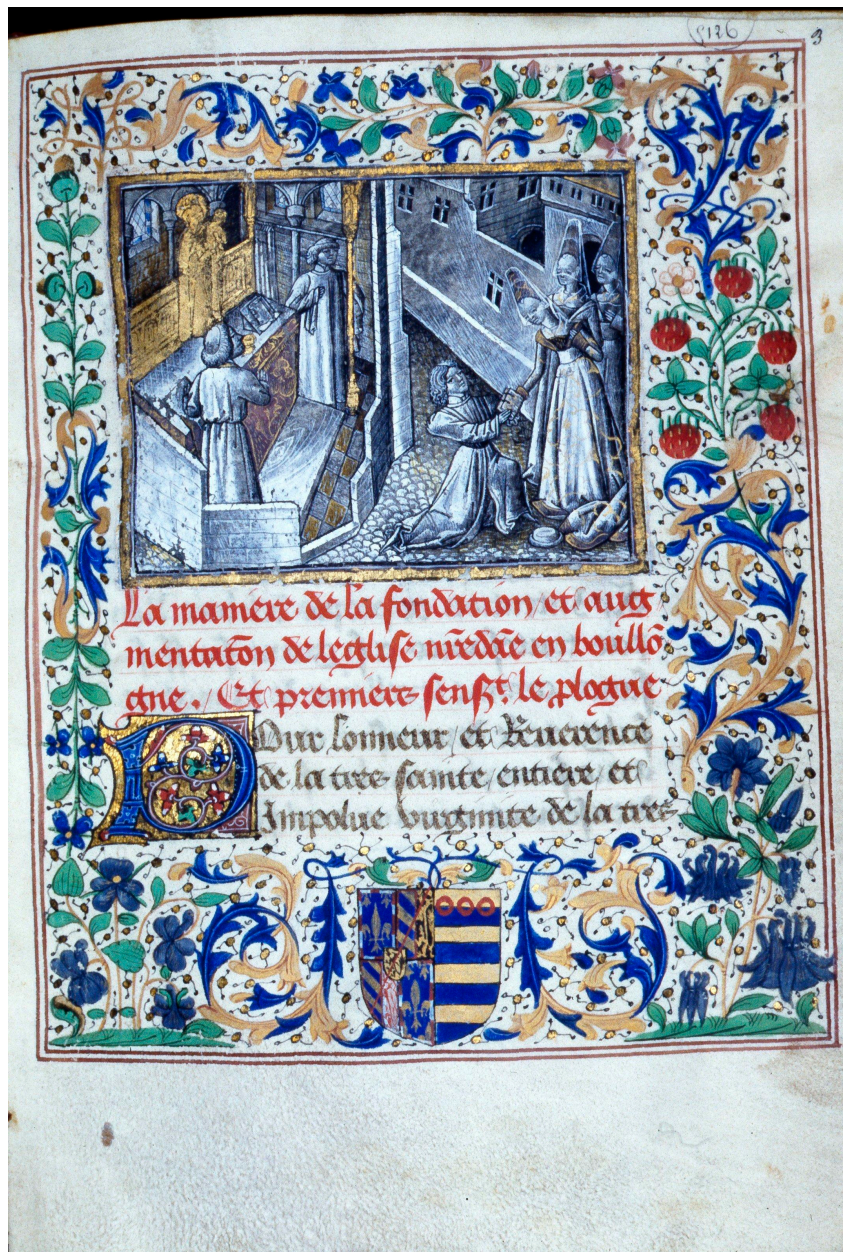 5126
3
La maniere de la fondation / et aug
mentatõn de leglise nr̃edãe en boullõ
gne . / Et premiers sensᵗ. le plogue
Pour lonneur / et Reuerence
de la tres sainte / entiere / et
Impolue virginite de la tres